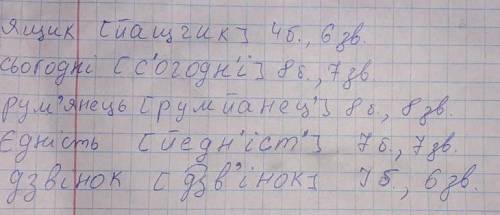 Ящик [йашчик] 4б., 6 зв.
сьогодні [с'огодн'і] 8б., 7 зв.
рум'янець [румйанец'] 8б, 8 зв.
Єдність [йедн'іст'] 7б., 7 зв.
дзвінок [дзв'інок] 7б, 6 зв.